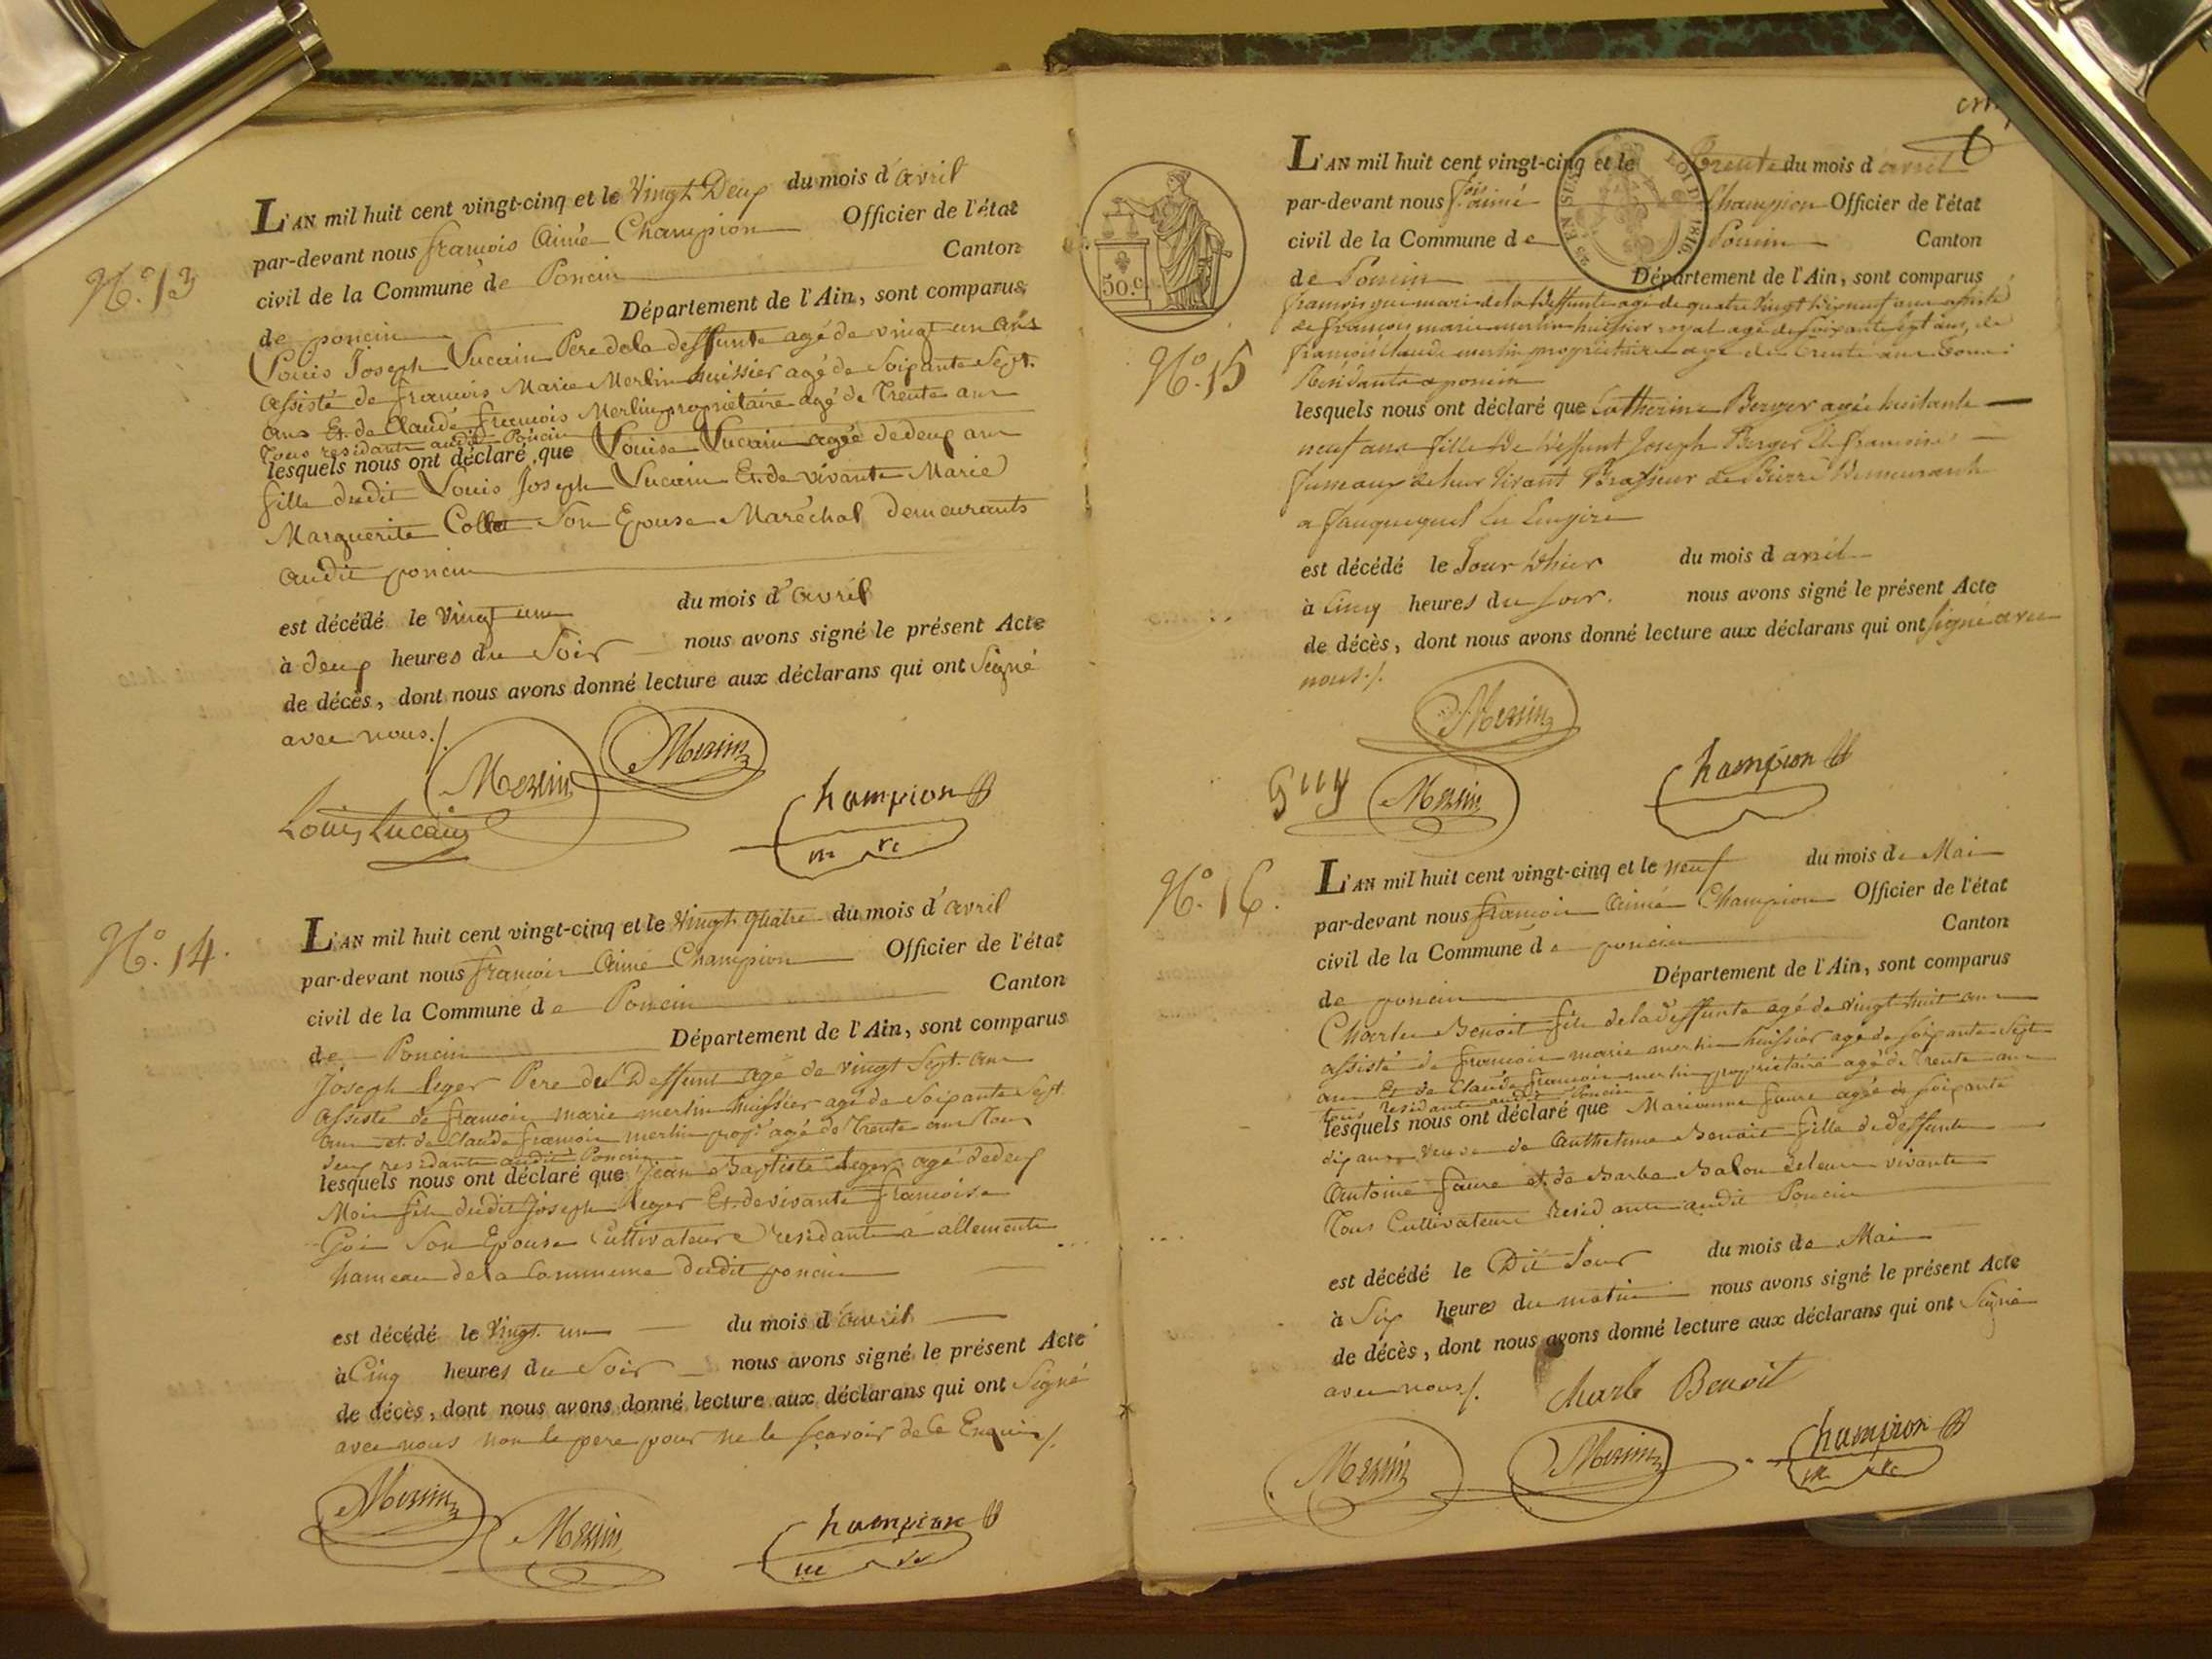 N.º 13
L'AN mil huit cent vingt-cinq et le Vingt Deux du mois d'avril
par-devant nous françois Aimé Champion Officier de l'état
civil de la Commune de Poncin Canton
de poncin Département de l'Ain, sont comparus
Louis Joseph Lucain Pere de la deffunte agé de vingt un ans
assisté de françois Marie Merlin huissier agé de Soixante Sept.
ans Et de Claude françois Merlin propriétaire agé de Trente ans
Tous residants audit Poncin
lesquels nous ont déclaré que Louise Lucain agée de deux ans
fille dudit Louis Joseph Lucain Et de vivante Marie
Marguerite Collet Son Epouse Maréchal demeurants
audit poncin
est décédé le vingt un du mois d'avril
à deux heures du Soir nous avons signé le présent Acte
de décès, dont nous avons donné lecture aux déclarans qui ont Signé
avec nous./.
Merlin Merlin
Louis Lucain
Champion
N.º 14.
L'AN mil huit cent vingt-cinq et le Vingt quatre du mois d'avril
par-devant nous françois Aimé Champion Officier de l'état
civil de la Commune de Poncin Canton
de Poncin Département de l'Ain, sont comparus
Joseph leger Pere du Deffunt agé de vingt Sept. ans
assisté de françois marie merlin huissier agé de Soixante Sept
ans et de Claude françois merlin prop.re agé de Trente ans Tous
deux residants audit Poncin
lesquels nous ont déclaré que Jean Baptiste leger agé de deux
Mois fils dudit Joseph leger Et de vivante françoise
Goi Son Epouse Cultivateurs residants a allement
hameau de la Commune dudit poncin
est décédé le Vingt un du mois d'avril
à Cinq heures du Soir nous avons signé le présent Acte
de décès, dont nous avons donné lecture aux déclarans qui ont Signé
avec nous non le pere pour ne le sçavoir de ce Enquis/.
Merlin Merlin
Champion
50.c
L'AN mil huit cent vingt-cinq et le Trente du mois d'avril
par-devant nous f.ois aimé Champion Officier de l'état
civil de la Commune de Poncin Canton
de Poncin Département de l'Ain, sont comparus
LOI DE 1816.
N.º 15
françois guy mari de la deffunte agé de quatre vingt ans assisté
de françois marie merlin huissier royal agé de soixante sept ans, de
françois Claude merlin propriétaire agé de Trente ans Tous
Résidants a poncin
lesquels nous ont déclaré que Catherine Berger agée huitante
neuf ans fille de deffunt Joseph Berger Et francoise
Jumeaux de leur Vivant Brasseur de Bierre Demeurants
a
est décédé le Jour d'hier du mois d avril
à Cinq heures du soir. nous avons signé le présent Acte
de décès, dont nous avons donné lecture aux déclarans qui ont signé avec
nous./.
Merlin
Guy Merlin
Champion
N.º 16.
L'AN mil huit cent vingt-cinq et le neuf du mois de Mai
par-devant nous françois Aimé Champion Officier de l'état
civil de la Commune de poncin Canton
de poncin Département de l'Ain, sont comparus
Charles Benoit fils de la deffunte agé de vingt huit ans
assisté de françois marie merlin huissier agé de soixante Sept
ans Et de Claude françois merlin propriétaire agé de Trente ans
tous residants audit Poncin
lesquels nous ont déclaré que Marianne faure agée de soixante
dix ans veuve de Anthelme Benoit fille de deffunts
Antoine faure et de Barbe Balou de leur vivants
Tous Cultivateurs residants audit Poncin
est décédé le Dit Jour du mois de Mai
à Six heures du matin nous avons signé le présent Acte
de décès, dont nous avons donné lecture aux déclarans qui ont Signé
avec nous/.
Charle Benoit
Merlin Merlin
Champion